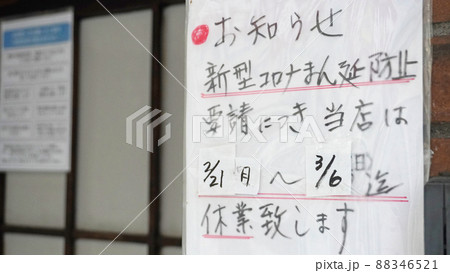 お知らせ
新型コロナまん延防止
要請につき当店は
2/21 月 〜 3/6 日 迄
休業致します
PIXTA
88346521